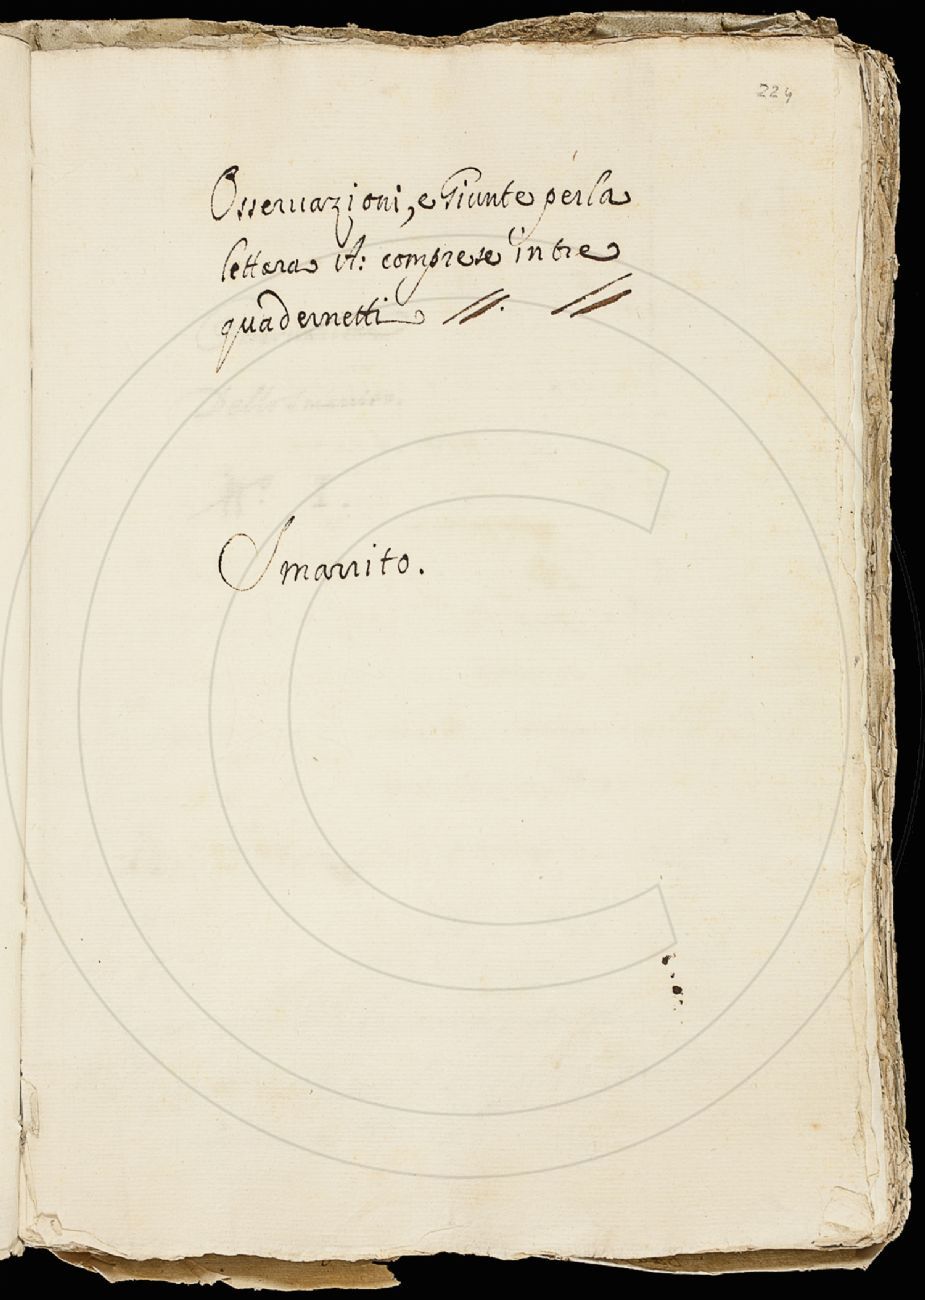 224
Osseruazioni, e Giunte per la
lettera A: comprese in tre
quadernetti //. //
Smarrito.